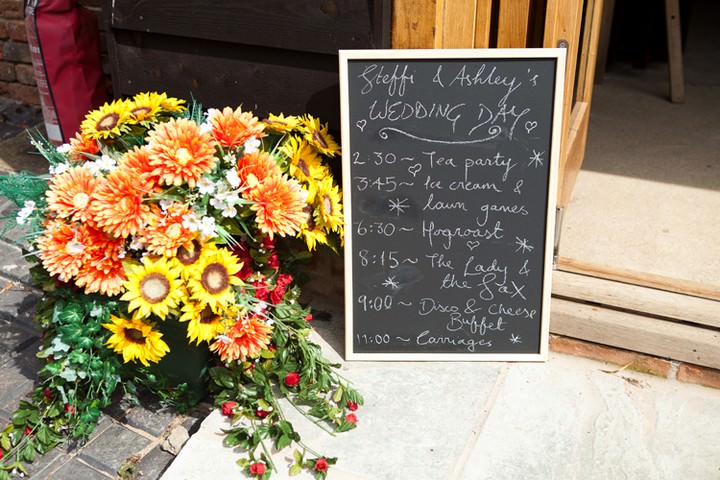 Steffi & Ashley's
WEDDING DAY
2:30 ~ Tea party
3:45 ~ Ice cream &
lawn games
6:30 ~ Hogroast
8:15 ~ The Lady &
the Sax
9:00 ~ Disco & cheese
Buffet
11:00 ~ Carriages